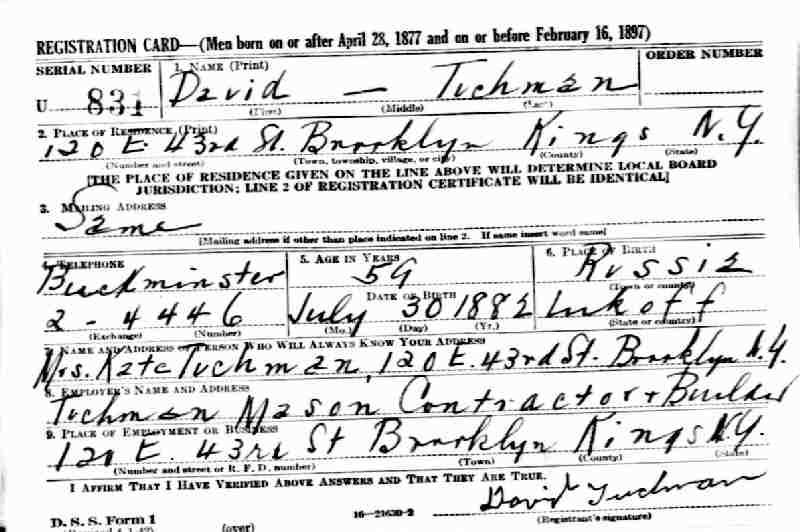 REGISTRATION CARD—(Men born on or after April 28, 1877 and on or before February 16, 1897)
SERIAL NUMBER 1. NAME (Print) ORDER NUMBER
U 831 David — Tuchman
(First) (Middle) (Last)
2. PLACE OF RESIDENCE (Print)
120 E. 43rd St. Brooklyn Kings N.Y.
(Number and street) (Town, township, village, or city) (County) (State)
[THE PLACE OF RESIDENCE GIVEN ON THE LINE ABOVE WILL DETERMINE LOCAL BOARD
JURISDICTION; LINE 2 OF REGISTRATION CERTIFICATE WILL BE IDENTICAL]
3. MAILING ADDRESS
Same
[Mailing address if other than place indicated on line 2. If same insert word same]
4. TELEPHONE 5. AGE IN YEARS 6. PLACE OF BIRTH
Buckminster 59 Russia
DATE OF BIRTH (Town or county)
2-4446 July 30 1882 Lukoff
(Exchange) (Number) (Mo.) (Day) (Yr.) (State or country)
7. NAME AND ADDRESS OF PERSON WHO WILL ALWAYS KNOW YOUR ADDRESS
Mrs. Kate Tuchman, 120 E. 43rd St. Brooklyn N.Y.
8. EMPLOYER'S NAME AND ADDRESS
Tuchman Mason Contractor + Builder
9. PLACE OF EMPLOYMENT OR BUSINESS
120 E. 43rd St Brooklyn Kings N.Y.
(Number and street or R. F. D. number) (Town) (County) (State)
I AFFIRM THAT I HAVE VERIFIED ABOVE ANSWERS AND THAT THEY ARE TRUE.
David Tuchman
D. S. S. Form 1 16—21630-2 (Registrant's signature)
(over)